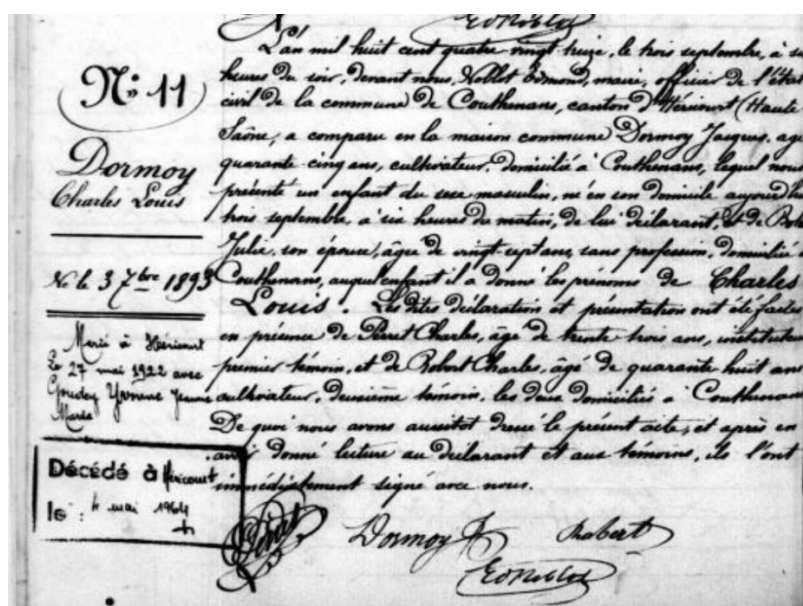 N° 11
Dormoy
Charles Louis
Né le 3 7bre 1893
Marié à Héricourt
Le 27 mai 1922 avec
Goudey Yvonne Jeanne
Marie
Décédé à Héricourt
le : 4 mai 1964
L'an mil huit cent quatre vingt treize, le trois septembre, à
heures du soir, devant nous, Noblot Edmond, maire, officier de l'état
civil de la commune de Couthenans, canton d'Héricourt (Haute
Saône, a comparu en la maison commune Dormoy Jacques, agé
quarante cinq ans, cultivateur, domicilié à Couthenans, lequel nous
présenté un enfant du sexe masculin, né en son domicile aujourd'hui
trois septembre, à six heures du matin, de lui déclarant, et de
Julie, son épouse, âgée de vingt sept ans, sans profession, domiciliée à
Couthenans, auquel enfant il a donné les prénoms de Charles
Louis. Les dites déclaration et présentation ont été faites
en présence de Perret Charles, âgé de trente trois ans, instituteur
premier témoin, et de Robert Charles, âgé de quarante huit ans
cultivateur, deuxième témoin, les deux domiciliés à Couthenans
De quoi nous avons aussitot dressé le présent acte, et après en
avoir donné lecture au déclarant et aux témoins, ils l'ont
immédiatement signé avec nous.
Perret Dormoy J Robert
Ed Noblot